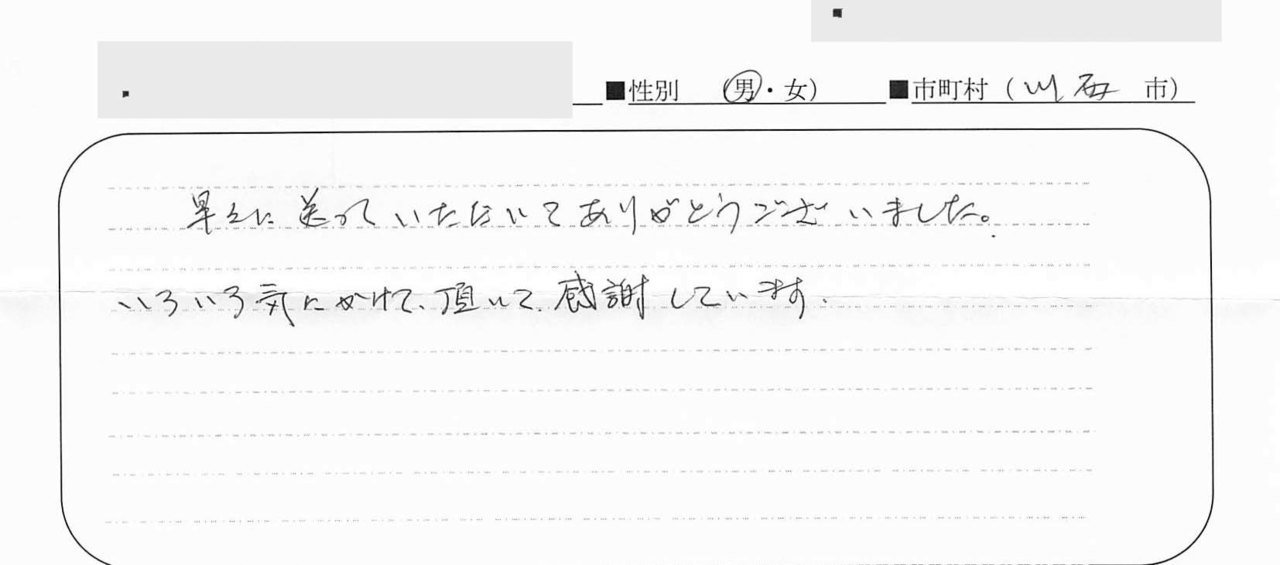 ■性別 (男・女) ■市町村 (川西 市)
早々に送っていただいてありがとうございました。
いろいろ気にかけて頂いて感謝しています.